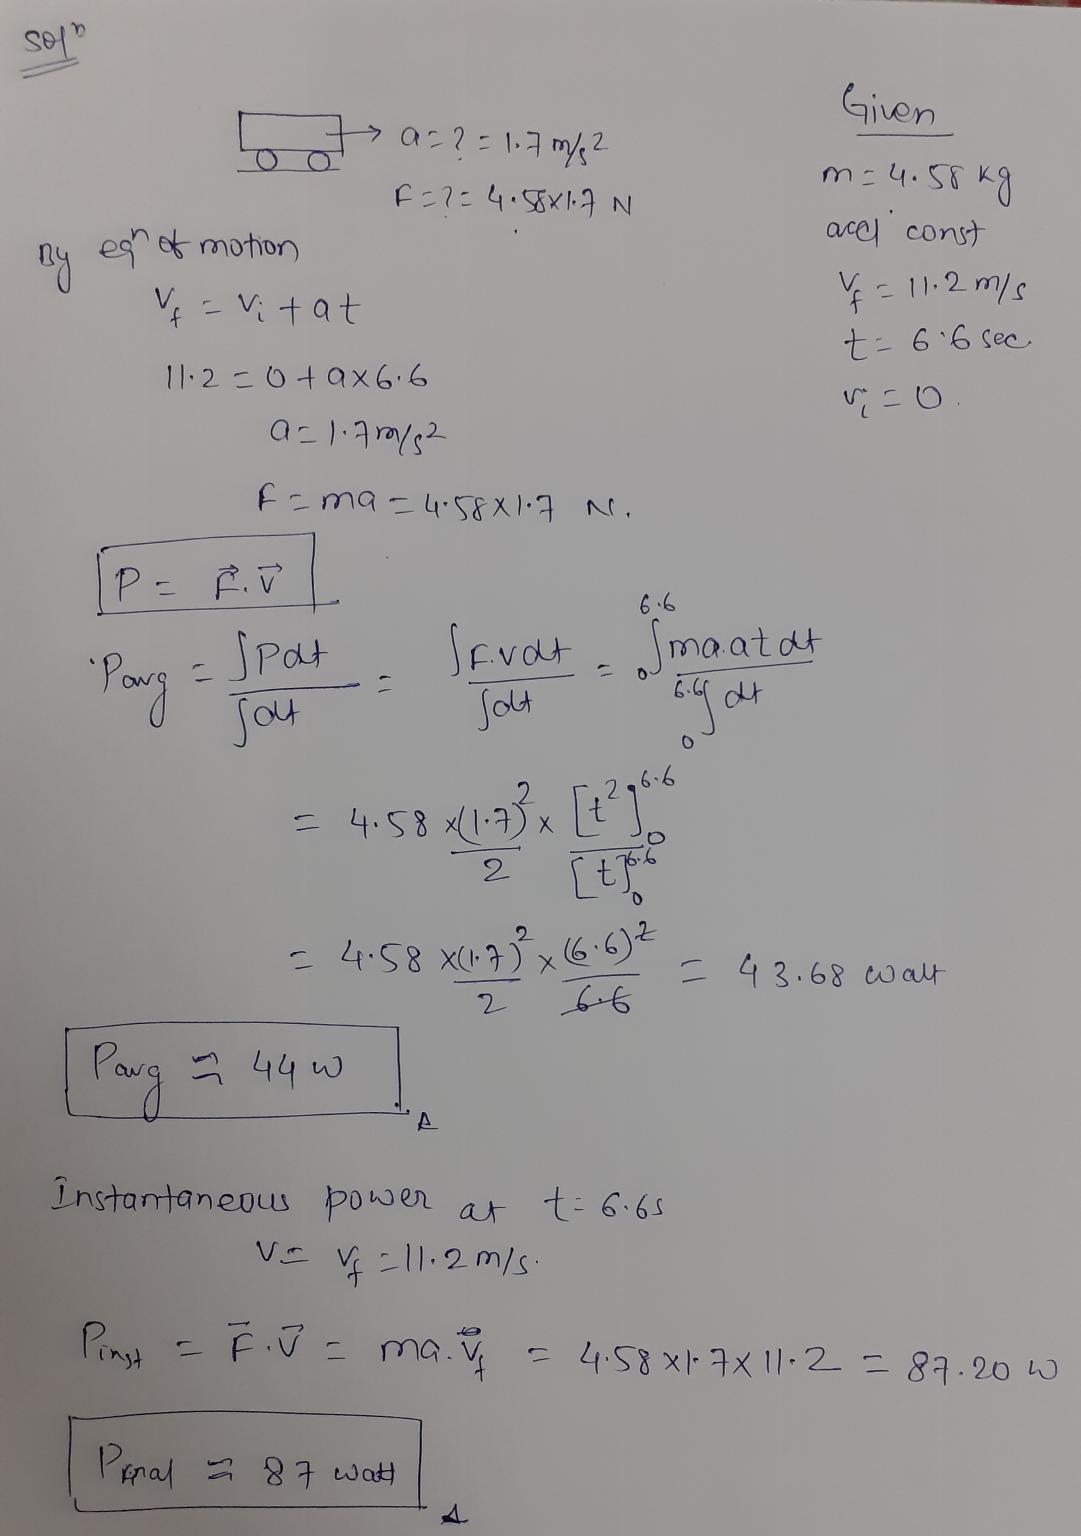 Solⁿ
a=?=1.7 m/s²
F=?=4.58x1.7 N
Given
m=4.58 kg
accl const
V_f = 11.2 m/s
t= 6.6 sec
v_i = 0.
By eqⁿ of motion
V_f = V_i + at
11.2 = 0+ax6.6
a=1.7m/s²
F = ma = 4.58x1.7 N.
P = F⃗.V⃗
P_avg = ∫Pdt/∫dt = ∫F.vdt/∫dt = ₀∫^6.6 ma.at dt / ₀∫^6.6 dt
= 4.58 x(1.7)²/2 x [t²]₀^6.6/[t]₀^6.6
= 4.58 x(1.7)²/2 x (6.6)²/6.6 = 43.68 watt
P_avg ≈ 44 w
A
Instantaneous power at t= 6.6s
V= V_f = 11.2 m/s.
P_inst = F⃗.V⃗ = ma.V⃗_f = 4.58x1.7x11.2 = 87.20 w
P_final ≈ 87 watt
A